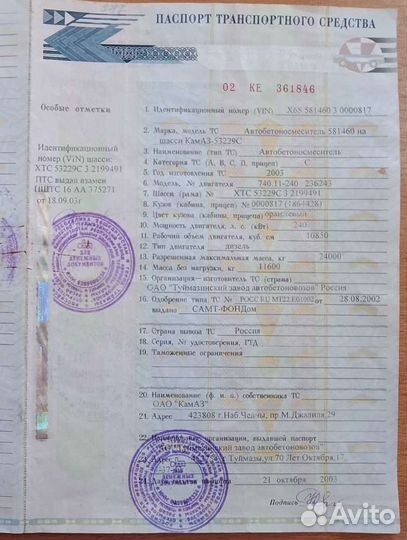 ПАСПОРТ ТРАНСПОРТНОГО СРЕДСТВА
02 КЕ 361846
Особые отметки
Идентификационный
номер (VIN) шасси:
ХТС 53229С 3 2199491
ПТС выдан взамен
ПШТС 16 АА 375271
от 18.09.03г
1. Идентификационный номер (VIN) X6S 581460 3 0000817
2. Марка, модель ТС Автобетоносмеситель 581460 на
шасси КамАЗ-53229С
3. Наименование (тип ТС) Автобетоносмеситель
4. Категория ТС (А, В, С, D, прицеп) С
5. Год изготовления ТС 2003
6. Модель, № двигателя 740.11-240 236243
7. Шасси (рама) № ХТС 53229С 3 2199491
8. Кузов (кабина, прицеп) № 0000817 (1864428)
9. Цвет кузова (кабины, прицепа) оранжевый
10. Мощность двигателя, л. с. (кВт) 240
11. Рабочий объем двигателя, куб. см 10850
12. Тип двигателя дизель
13. Разрешенная максимальная масса, кг 24000
14. Масса без нагрузки, кг 11600
15. Организация - изготовитель ТС (страна)
ОАО "Туймазинский завод автобетоновозов" Россия
16. Одобрение типа ТС № РОСС RU.МТ22.Е01002 от 28.08.2002
выдано САМТ-ФОНДом
17. Страна вывоза ТС Россия
18. Серия, № удостоверения, ГТД
19. Таможенные ограничения
20. Наименование (ф. и. о.) собственника ТС
ОАО "КамАЗ"
21. Адрес 423808 г.Наб.Челны, пр М.Джалиля,29
22. Наименование организации, выдавшей паспорт
завод автобетоновозов"
Туймазы,ул.70 Лет Октября,17
21 октября 2003
Подпись
ДЕНЕЖНЫХ
ДОКУМЕНТОВ
Avito